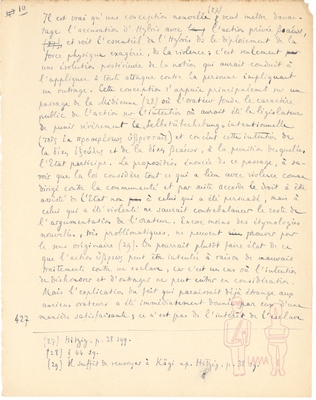 10
Il est vrai qu'une conception nouvelle (27) veut mettre davan-
tage l'accusation d'Hybris avec l'action privée
et voit l'essentiel de l'Hybris de le déploiement de la
force physique exagérée, de la violence; c'est seulement
une évolution postérieure de la notion qui aurait conduit à
l'appliquer à toute attaque contre la personne impliquant
un outrage. Cette conception s'appuie principalement sur un
passage de la Midienne (28) où l'orateur fonde le caractère
public de l'action sur l'intention où aurait été le législateur
de punir sévèrement la
et conclut cette intention de
la à la pénition desquelles,
l'Etat participe. La proposition, énoncée de ce passage, à sa-
voir que la loi considère tout ce qui a lieu avec violence comme
dirigé contre la communauté et par suite accorde le droit à être
assisté de l'Etat non à celui qui a été persuadé, mais à
celui qui a été violenté ne saurait contrebalancer le reste de
l'argumentation de l'orateur. Encore moins les étymologies
nouvelles, très problématiques, ne peuvent prouver par
le sens originaire (29). On pourrait plutôt faire état de ce
que l'action peut être intentée à raison de mauvais
traitements contre un esclave, car c'est un cas où l'intention
de déshonorer et d'outrager ne peut entrer en considération.
Mais l'explication du fait qui paraissait déjà étrange aux
anciens orateurs a été immédiatement donnée par eux d'une
manière satisfaisante; ce n'est pas de l'intérêt de l'esclave
427
(27) Hitzig, p. 38 sqq.
(28) § 44 sq.
(29) Il suffit de renvoyer à Kägi ap. Hitzig, p. 38 sq.